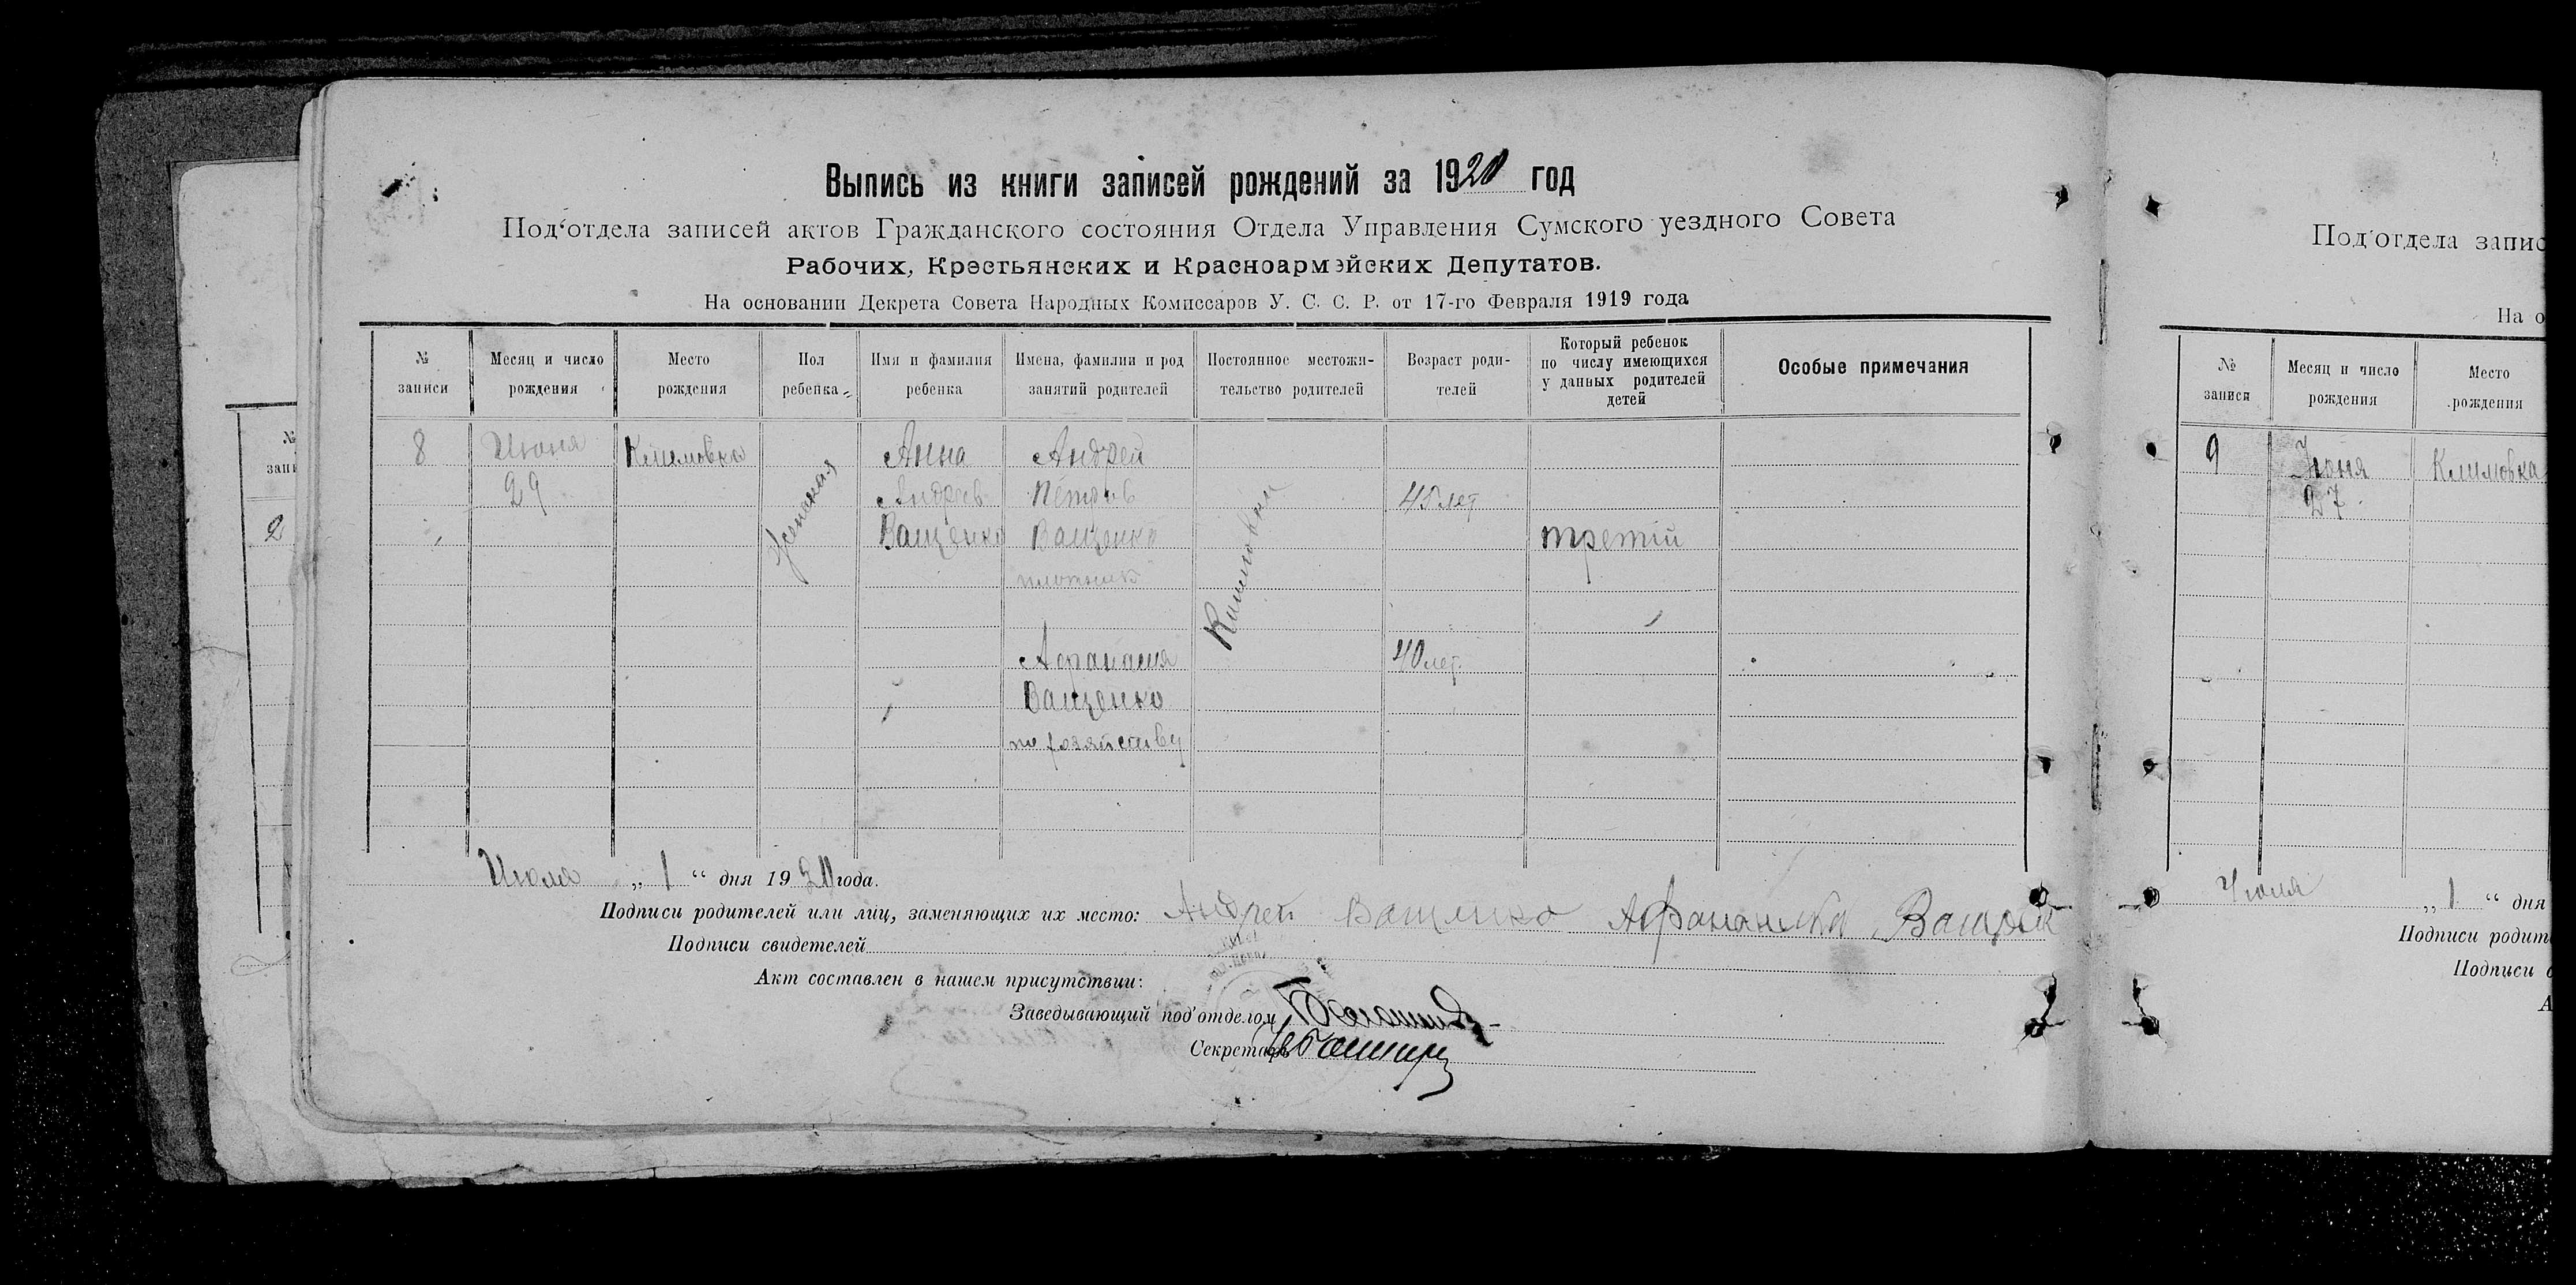 Выпись из книги записей рождений за 1920 год
Под'отдела записей актов Гражданского состояния Отдела Управления Сумского уездного Совета
Рабочих, Крестьянских и Красноармэйских Депутатов.
На основании Декрета Совета Народных Комиссаров У. С. С. Р. от 17-го Февраля 1919 года
№ записи
Месяц и число рождения
Место рождения
Пол ребенка
Имя и фамилия ребенка
Имена, фамилии и род занятий родителей
Постоянное местожительство родителей
Возраст родителей
Который ребенок по числу имеющихся у данных родителей детей
Особые примечания
8 Июня Климовка Анна Андрей
29 женская Андреев Петров 45 лет
Ващенко Ващенко третій
плотник
Афанасия 40 лет
Ващенко
по хозяйству
Июля „ 1 “ дня 1920 года.
Подписи родителей или лиц, заменяющих их место: Андрей Ващенко
Подписи свидетелей
Акт составлен в нашем присутствии:
Заведывающий под'отделом
Секретарь
№ запи
2
Под'отдела запис
На о
№ записи
Месяц и число рождения
Место рождения
9 Июня Климовка
27
Июля „ 1 “ дня
Подписи родит
Подписи с
А